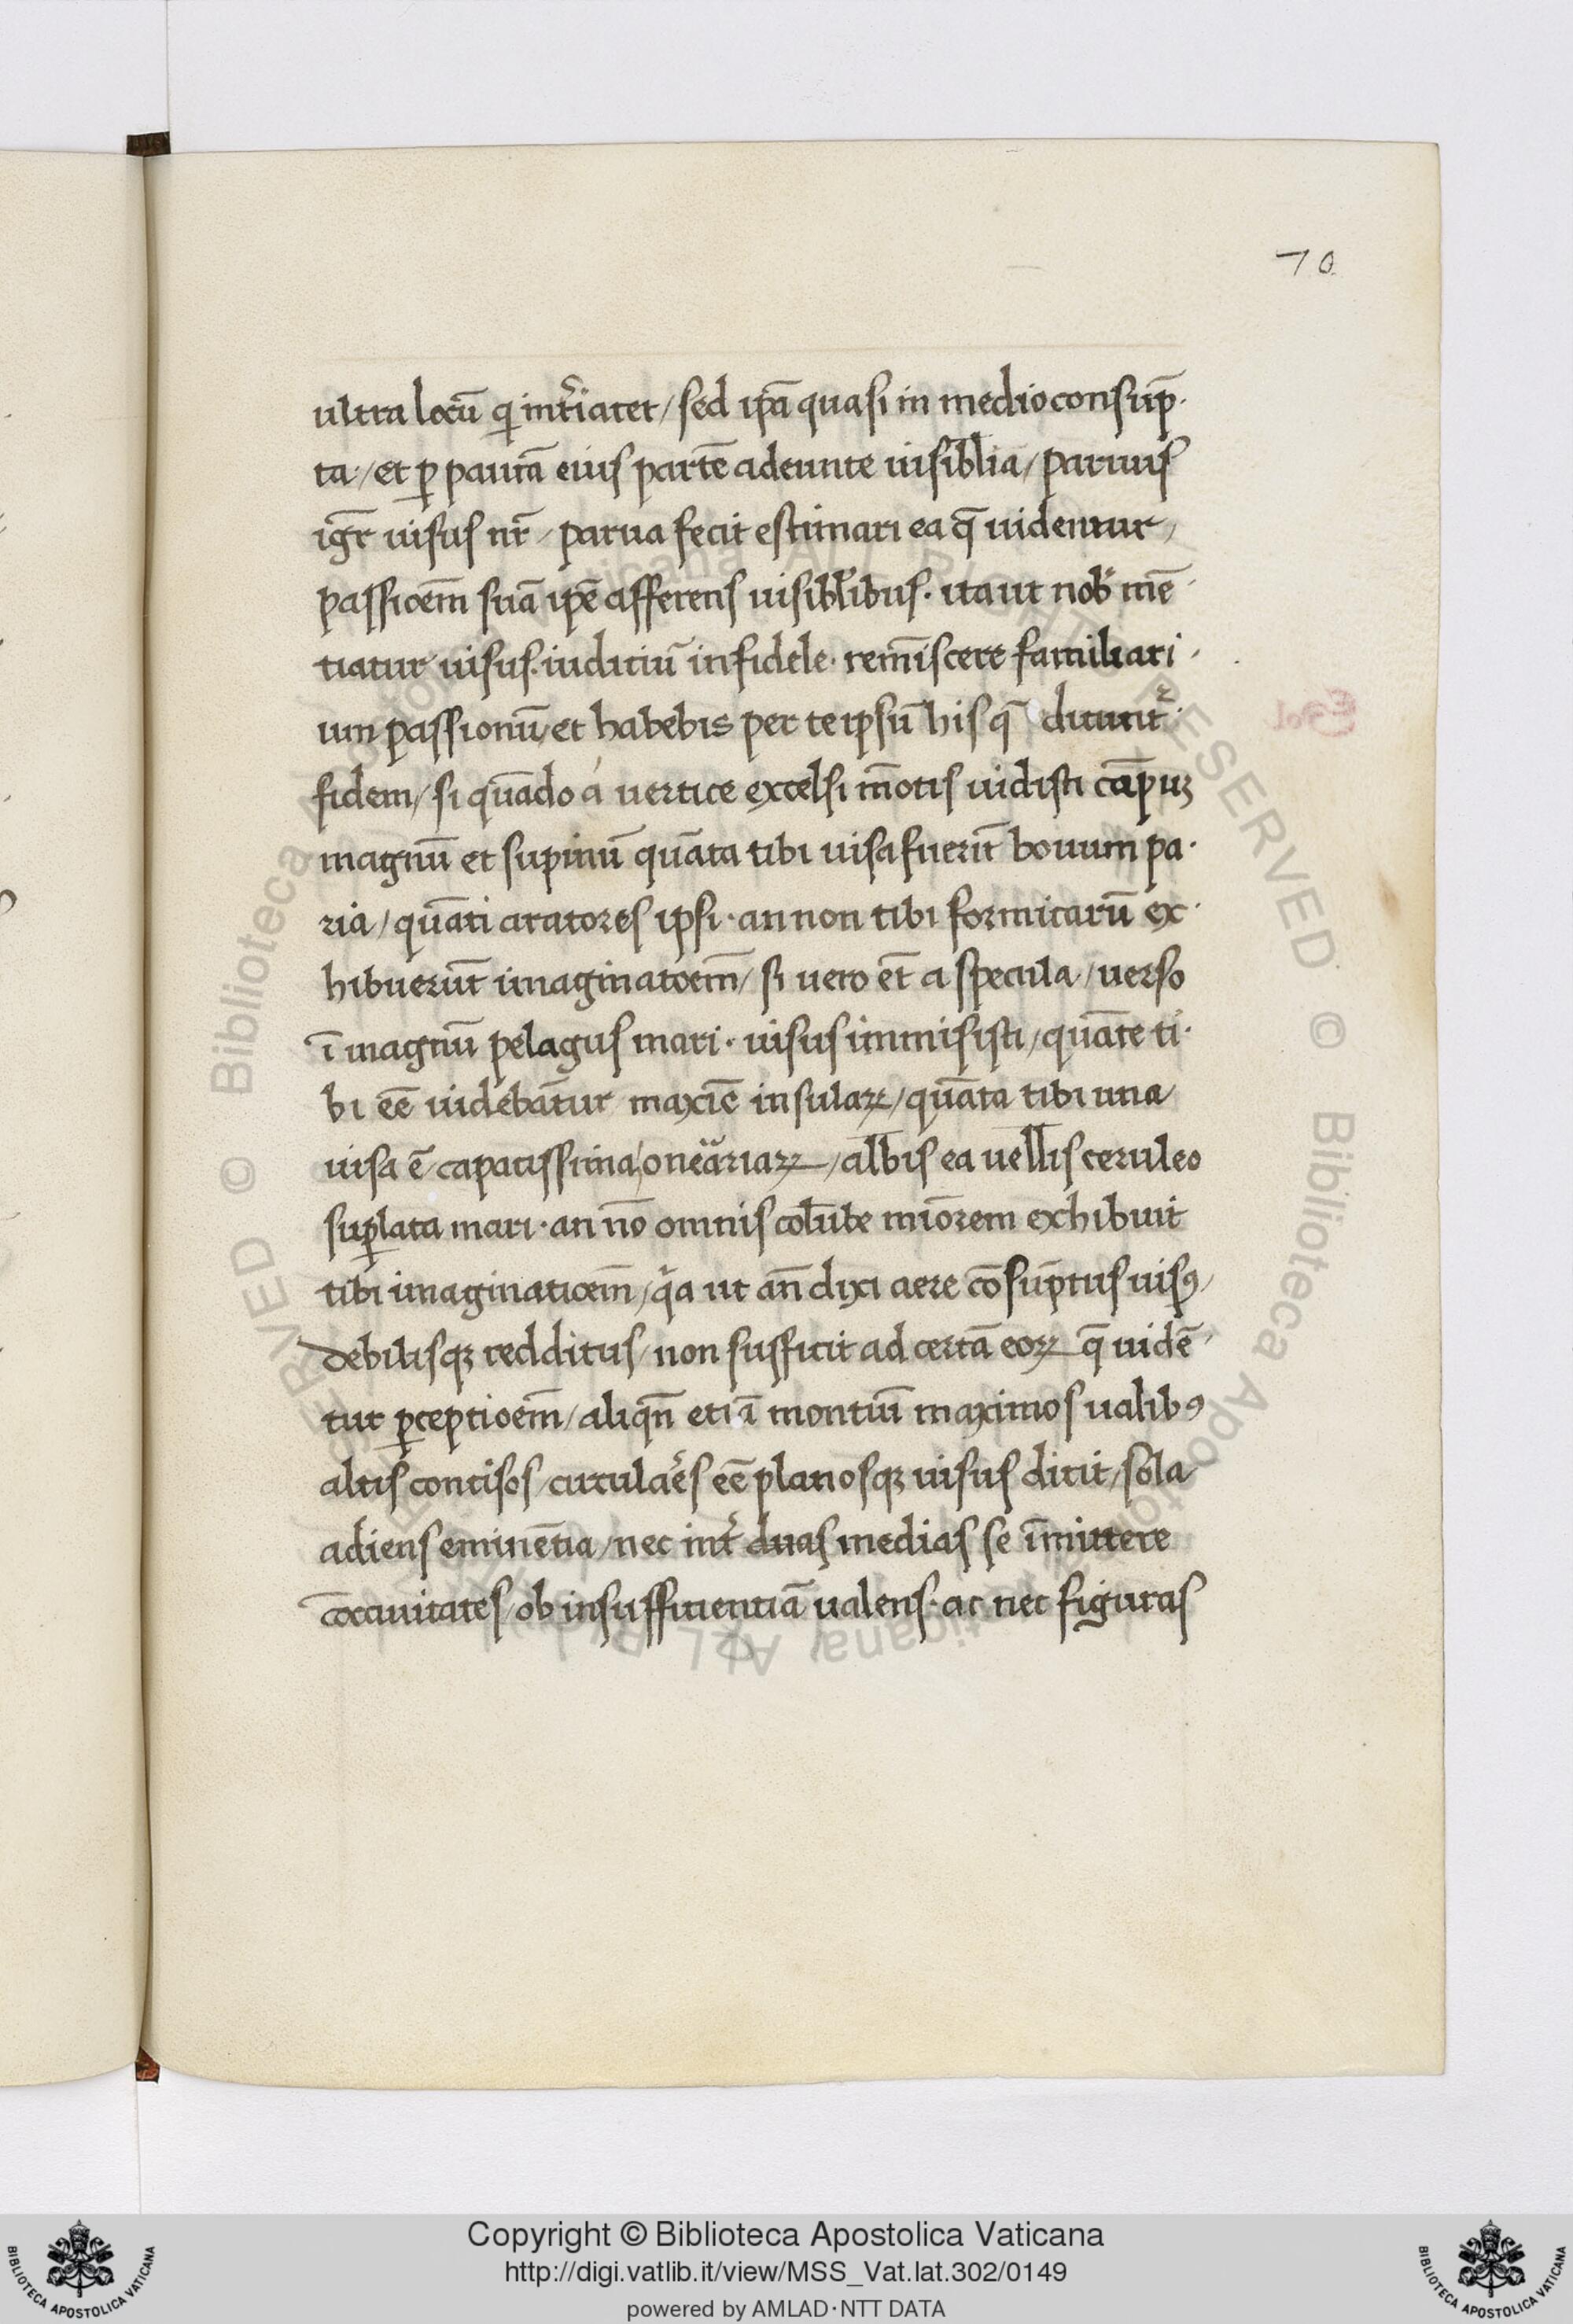 70
ultra locū qͥ int̄iacet / sed ip̄a quasi in medio consūp̄
ta / et ꝑ paucā eius partē adeunte uisib̄lia / paruus
igr̄ uisus nr̄ / parua fecit estimari ea q̄ uidentur /
passioēm suā ip̄e afferens uisibl̄ibus · ita ut nob̄ mē
tiatur uisus · iuditiū infidele · remīscere familiari
um passionū / et habebis per te ipsū his q̄ dicunt᷑
fidem / si qūado á uertice excelsi m̄otis uidisti cāpuꝫ
magnū et supinū quāta tibi uisa fuerūt bouum pa
ria / quāti aratores ipsi · an non tibi formicarū ex
hibuerūt imaginatoēm / si uero ēt a specula / uerso
ī magnū pelagus mari · uisus immisisti / quāte ti
bi eē uidebāntur maxīe insulaꝝ / quāta tibi una
uisa ē capatissima / oneariaꝝ / albis ea uell̄is ceruleo
suꝑlata mari · an nō omnis colūbe miōrem exhibuit
tibi imaginatioēm / qͥa ut an̄ dixi aere cōsūptus uisꝰ /
debilisqꝫ redditus / non sufficit ad certā eoꝝ q̄ uidē
tur ꝑceptioēm / aliqn̄ etiā montiū maximos ualibꝰ
altis concisos / circulaēs eē planosqꝫ uisus dicit / sola
adiens eminētia / nec int̄ duas medias se īmittere
cōcauitates / ob insufficientiā ualens · ac nec figuras
Copyright © Biblioteca Apostolica Vaticana
http://digi.vatlib.it/view/MSS_Vat.lat.302/0149
powered by AMLAD·NTT DATA
BIBLIOTECA APOSTOLICA VATICANA
BIBLIOTECA APOSTOLICA VATICANA